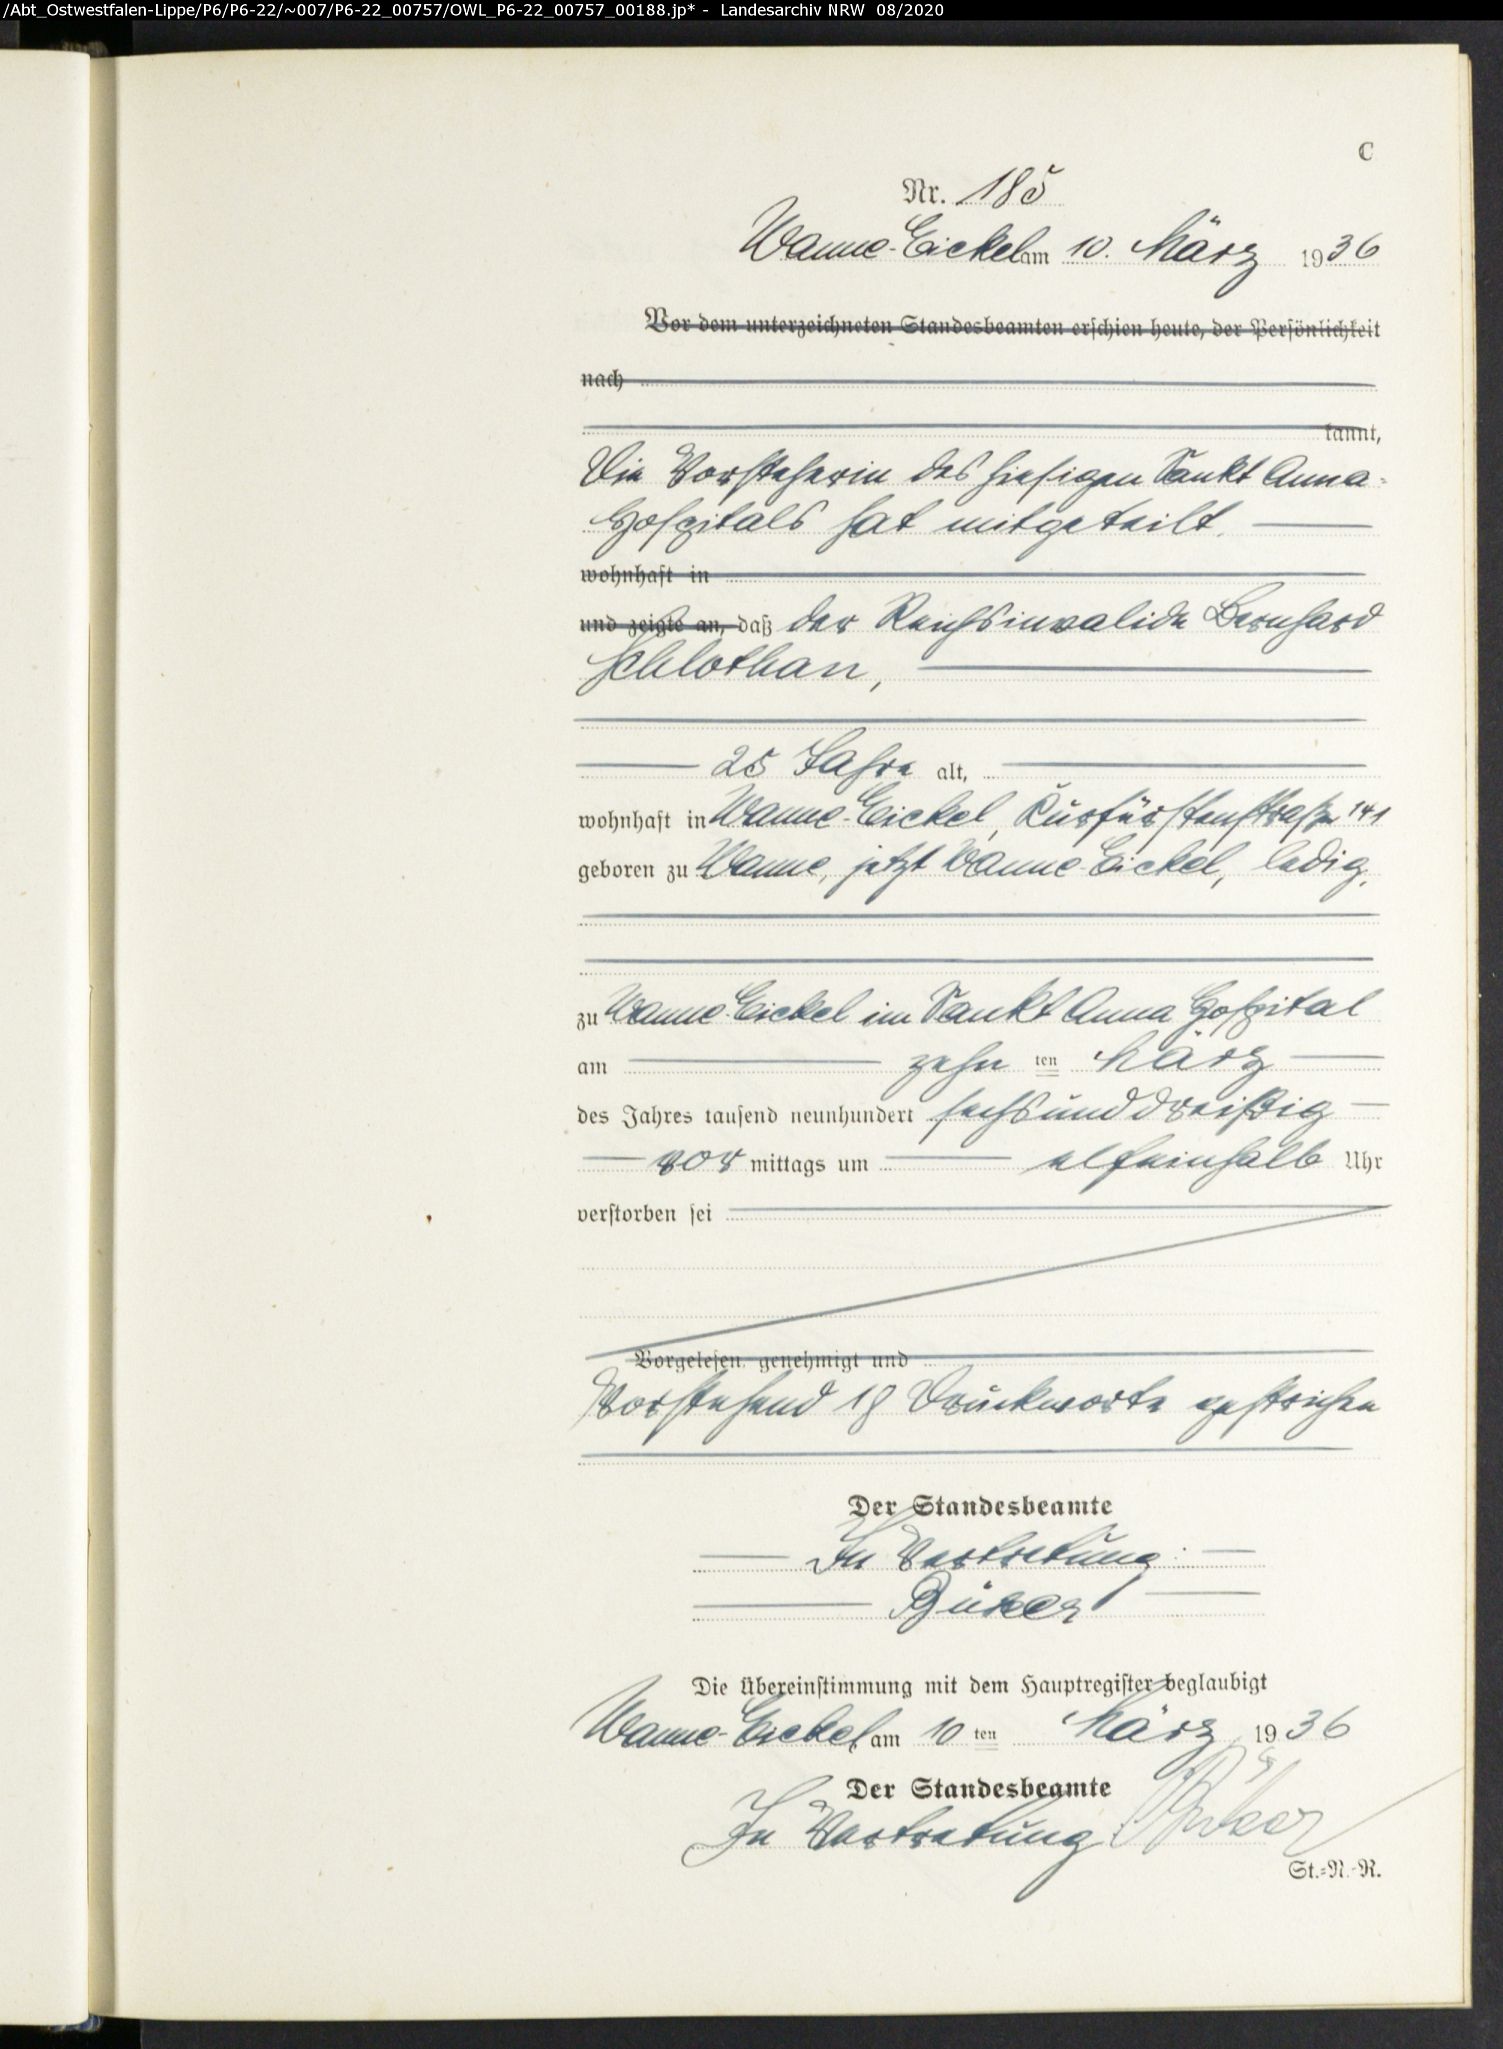 /Abt_Ostwestfalen-Lippe/P6/P6-22/~007/P6-22_00757/OWL_P6-22_00757_00188.jp* - Landesarchiv NRW 08/2020
C
Nr. 185
Wanne-Eickel am 10. März 1936
Vor dem unterzeichneten Standesbeamten erschien heute, der Persönlichkeit
nach
kannt,
Die Vorsteherin des hiesigen Sankt Anna-
Hospitals hat mitgeteilt.
wohnhaft in
und zeigte an, daß der Reichsinvalide Bernhard
Schlothan,
25 Jahre alt,
wohnhaft in Wanne-Eickel, Kurfürstenstraße 141
geboren zu Wanne, jetzt Wanne-Eickel, ledig,
zu Wanne-Eickel im Sankt Anna Hospital
am zehn ten März
des Jahres tausend neunhundert sechsunddreißig
vor mittags um elfeinhalb Uhr
verstorben sei
Vorgelesen, genehmigt und
Vorstehend 18 Druckworte gestrichen
Der Standesbeamte
In Vertretung:
Die Übereinstimmung mit dem Hauptregister beglaubigt
Wanne-Eickel am 10 ten März 1936
Der Standesbeamte
In Vertretung:
St.-N.-R.